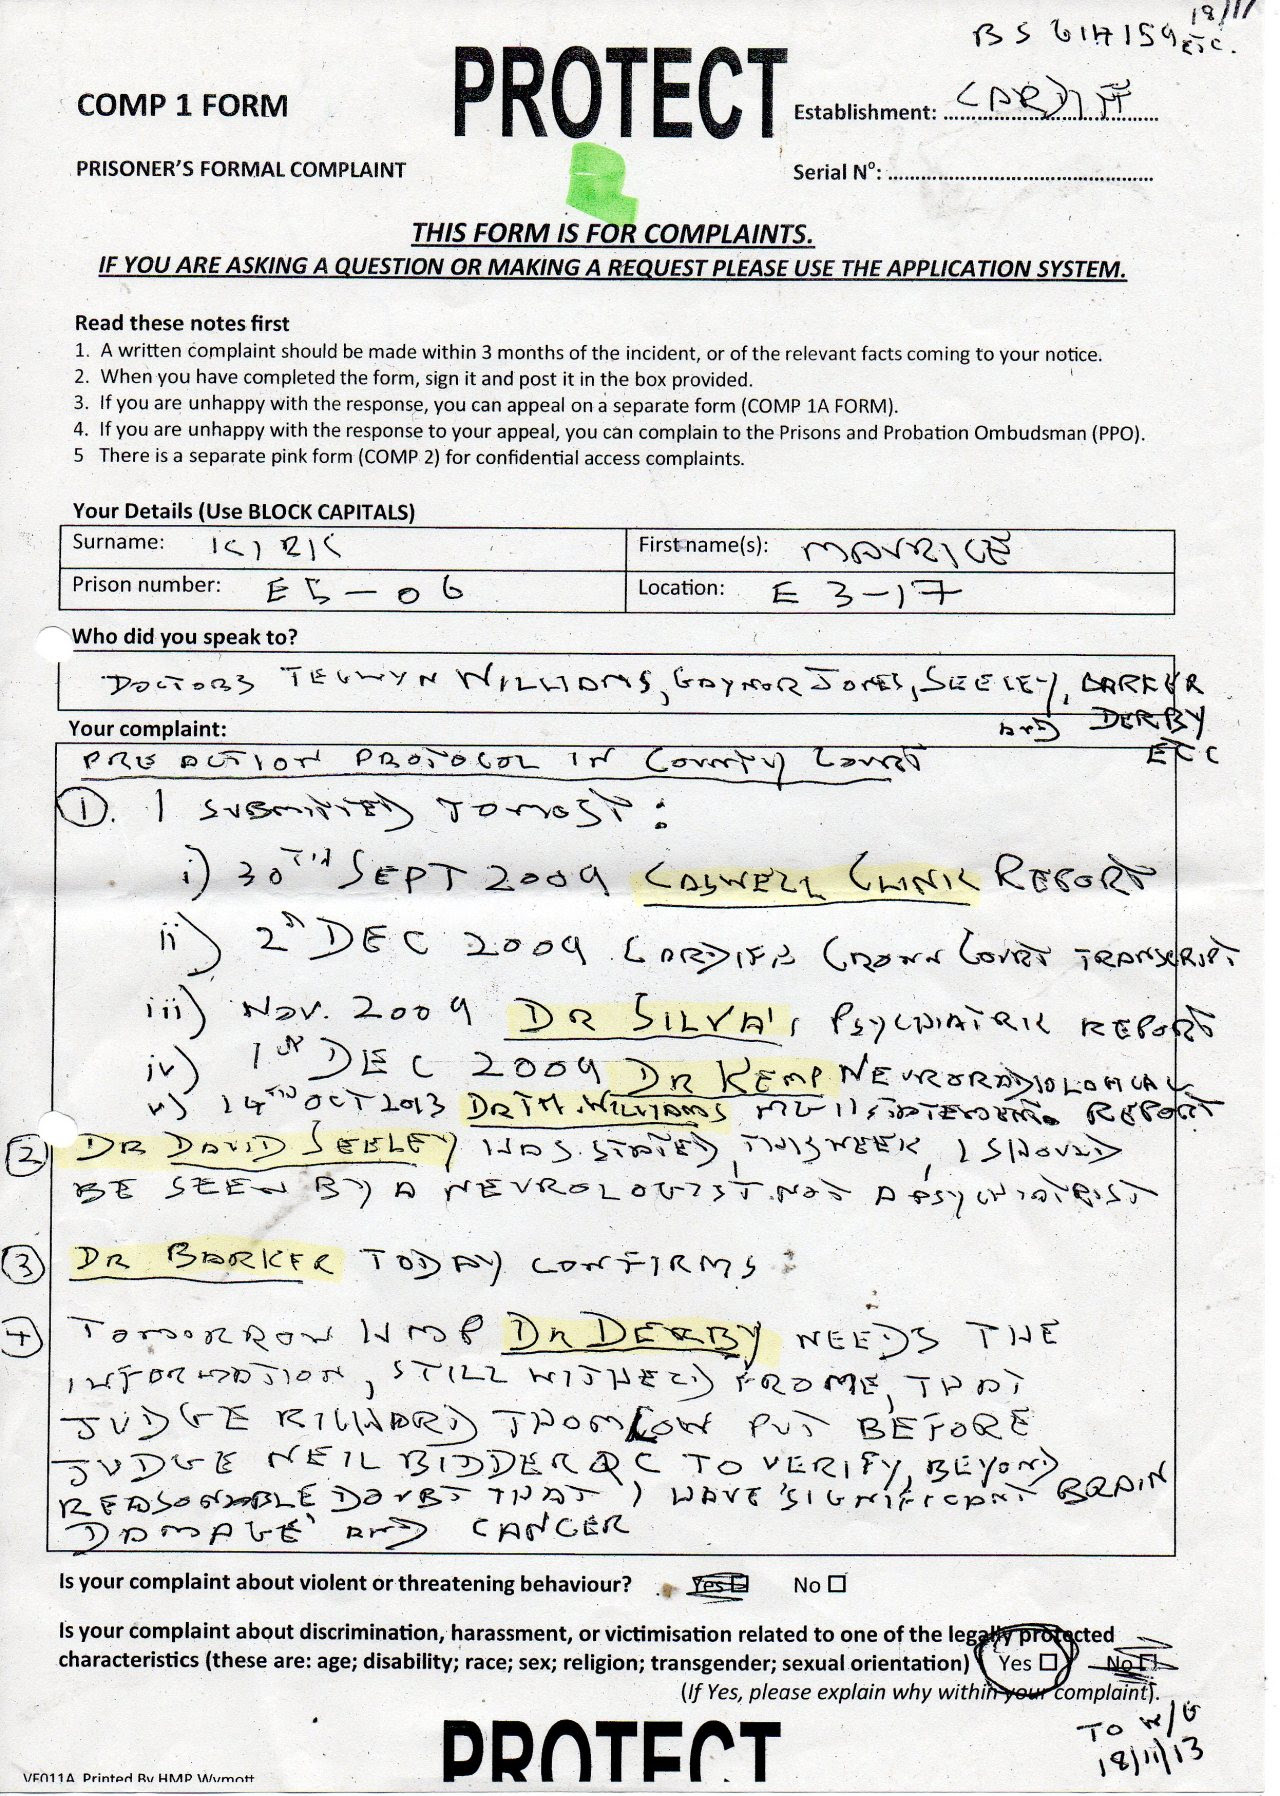 18/11
BS 614159 ETC.
PROTECT
COMP 1 FORM
Establishment: CARDIFF
PRISONER'S FORMAL COMPLAINT
Serial Nº: ........................
THIS FORM IS FOR COMPLAINTS.
IF YOU ARE ASKING A QUESTION OR MAKING A REQUEST PLEASE USE THE APPLICATION SYSTEM.
Read these notes first
1. A written complaint should be made within 3 months of the incident, or of the relevant facts coming to your notice.
2. When you have completed the form, sign it and post it in the box provided.
3. If you are unhappy with the response, you can appeal on a separate form (COMP 1A FORM).
4. If you are unhappy with the response to your appeal, you can complain to the Prisons and Probation Ombudsman (PPO).
5 There is a separate pink form (COMP 2) for confidential access complaints.
Your Details (Use BLOCK CAPITALS)
Surname: KIRK First name(s): MAURICE
Prison number: E5-06 Location: E 3-17
Who did you speak to?
DOCTORS TEGWYN WILLIAMS, GAYNOR JONES, SEELEY, BARKER
AND DERBY
Your complaint:
ETC
PRE ACTION PROTOCOL IN COUNTY COURT
1. I SUBMITTED TO MOST:
i) 30TH SEPT 2009 CASWELL CLINIC REPORT
ii) 2ND DEC 2009 CARDIFF CROWN COURT TRANSCRIPT
iii) NOV. 2009 DR SILVA'S PSYCHIATRIC REPORT
iv) 1ST DEC 2009 DR KEMP NEURORADIOLOGICAL REPORT
v) 14TH OCT 2013 DR TM. WILLIAMS MG11 STATEMENT
2 DR DAVID SEELEY HAS STATED, THIS WEEK, I SHOULD
BE SEEN BY A NEUROLOGIST NOT A PSYCHIATRIST
3 DR BARKER TODAY CONFIRMS:
4 TOMORROW HMP DR DERBY NEEDS THE
INFORMATION, STILL WITHELD FROM ME, THAT
JUDGE RICHARD THOMLOW PUT BEFORE
JUDGE NEIL BIDDER QC TO VERIFY, BEYOND
REASONABLE DOUBT THAT I HAVE 'SIGNIFICANT BRAIN
DAMAGE' AND CANCER
Is your complaint about violent or threatening behaviour? Yes No
Is your complaint about discrimination, harassment, or victimisation related to one of the legally protected
characteristics (these are: age; disability; race; sex; religion; transgender; sexual orientation) Yes No
(If Yes, please explain why within your complaint).
TO W/G
18/11/13
PROTECT
VF011A Printed By HMP Wymott